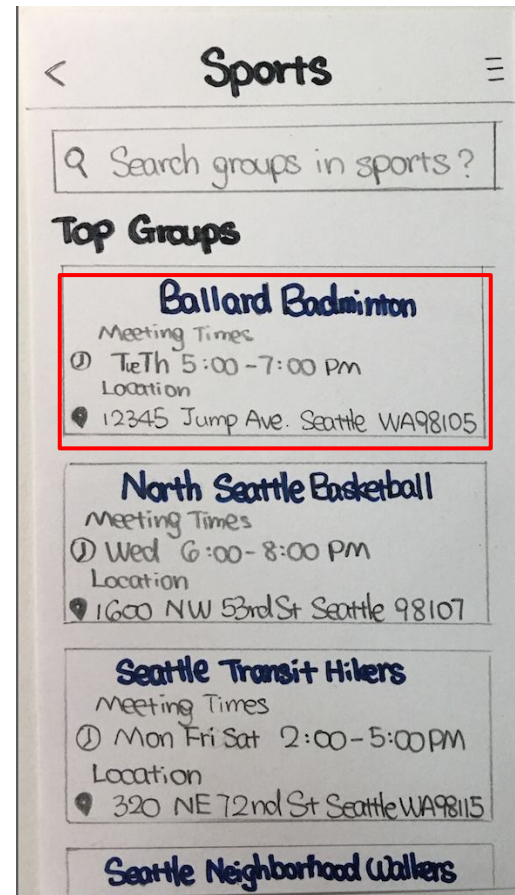 < Sports
Search groups in sports?
Top Groups
Ballard Badminton
Meeting Times
TueTh 5:00-7:00 PM
Location
12345 Jump Ave. Seattle WA98105
North Seattle Basketball
Meeting Times
Wed 6:00-8:00 PM
Location
1600 NW 53rd St Seattle 98107
Seattle Transit Hikers
Meeting Times
Mon Fri Sat 2:00-5:00PM
Location
320 NE 72nd St Seattle WA98115
Seattle Neighborhood Walkers